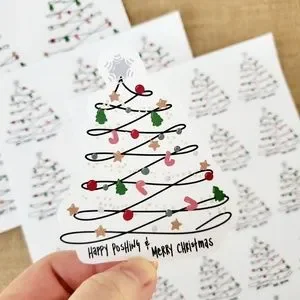 HAPPY POSHING & MERRY CHRISTMAS